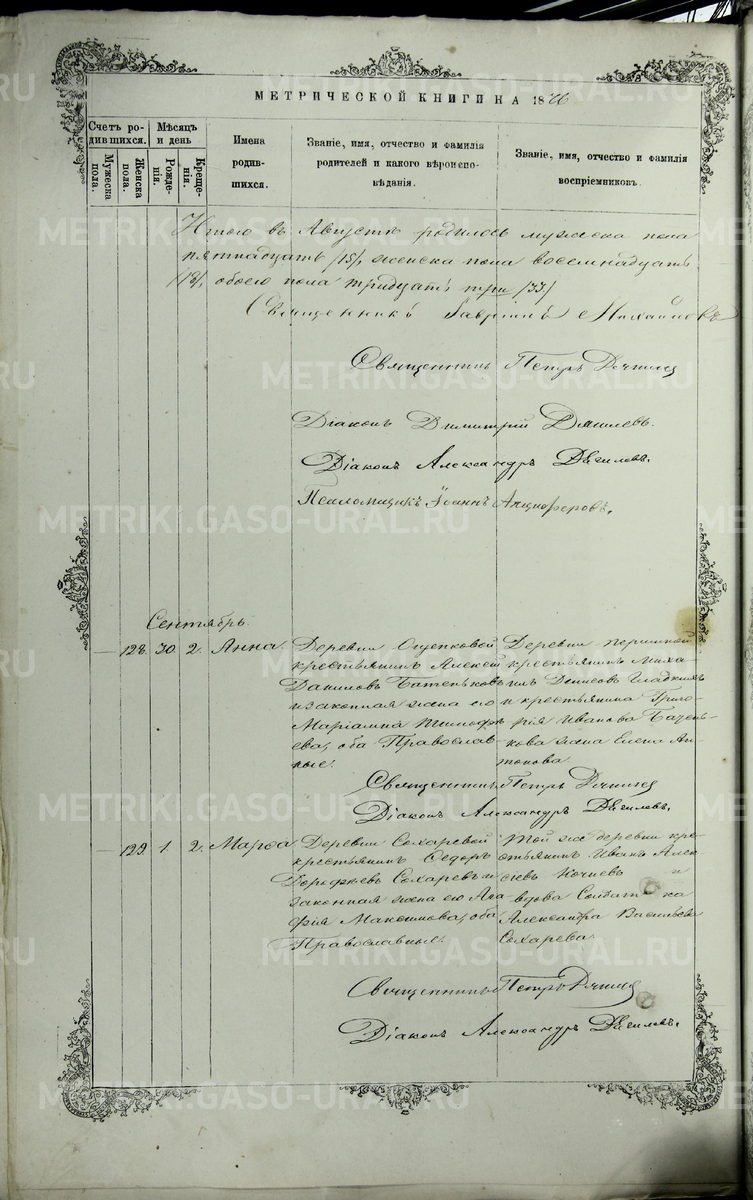 МЕТРИЧЕСКОЙ КНИГИ НА 18
Счетъ родившихся.
Мужеска пола.
Женска пола.
Мѣсяцъ и день
Рожденія.
Крещенія.
Имена родившихся.
Званіе, имя, отчество и фамилія родителей и какого вѣроисповѣданія.
Званіе, имя, отчество и фамилія воспріемниковъ.
Итого въ Августѣ родилось мужеска пола
пятнадцать /15/, женска пола восемнадцать
/18/, обоего пола тридцать три /33/
Священникъ Гавріилъ Михайловъ
Священникъ Петръ
Діаконъ Димитрій
Діаконъ Александръ
Псаломщикъ Іоаннъ Анциферовъ.
Сентябрь.
128. 30. 2. Анна.
Деревни Ощепковой
крестьянинъ Алексей
Даниловъ Батеньковъ
и законная жена его
Маріамна Тимофе-
ева, оба Православ-
ные.
Деревни
крестьянинъ Миха-
илъ Денисовъ Гладкихъ
и крестьянина Григо-
рія Иванова Батень-
кова жена Елена Ан-
тонова.
Священникъ Петръ
Діаконъ Александръ
129. 1. 2. Марѳа
Деревни Сохаревой
крестьянинъ Ѳедоръ
Сохаревъ и
законная жена его Ага-
фія Максимова, оба
Православные.
Той же деревни кре-
стьянинъ Иванъ Алек-
сѣевъ Кочневъ и
вдова Солдатка
Александра Васильева
Сохарева.
Священникъ Петръ
Діаконъ Александръ
METRIKI.GASO-URAL.RU